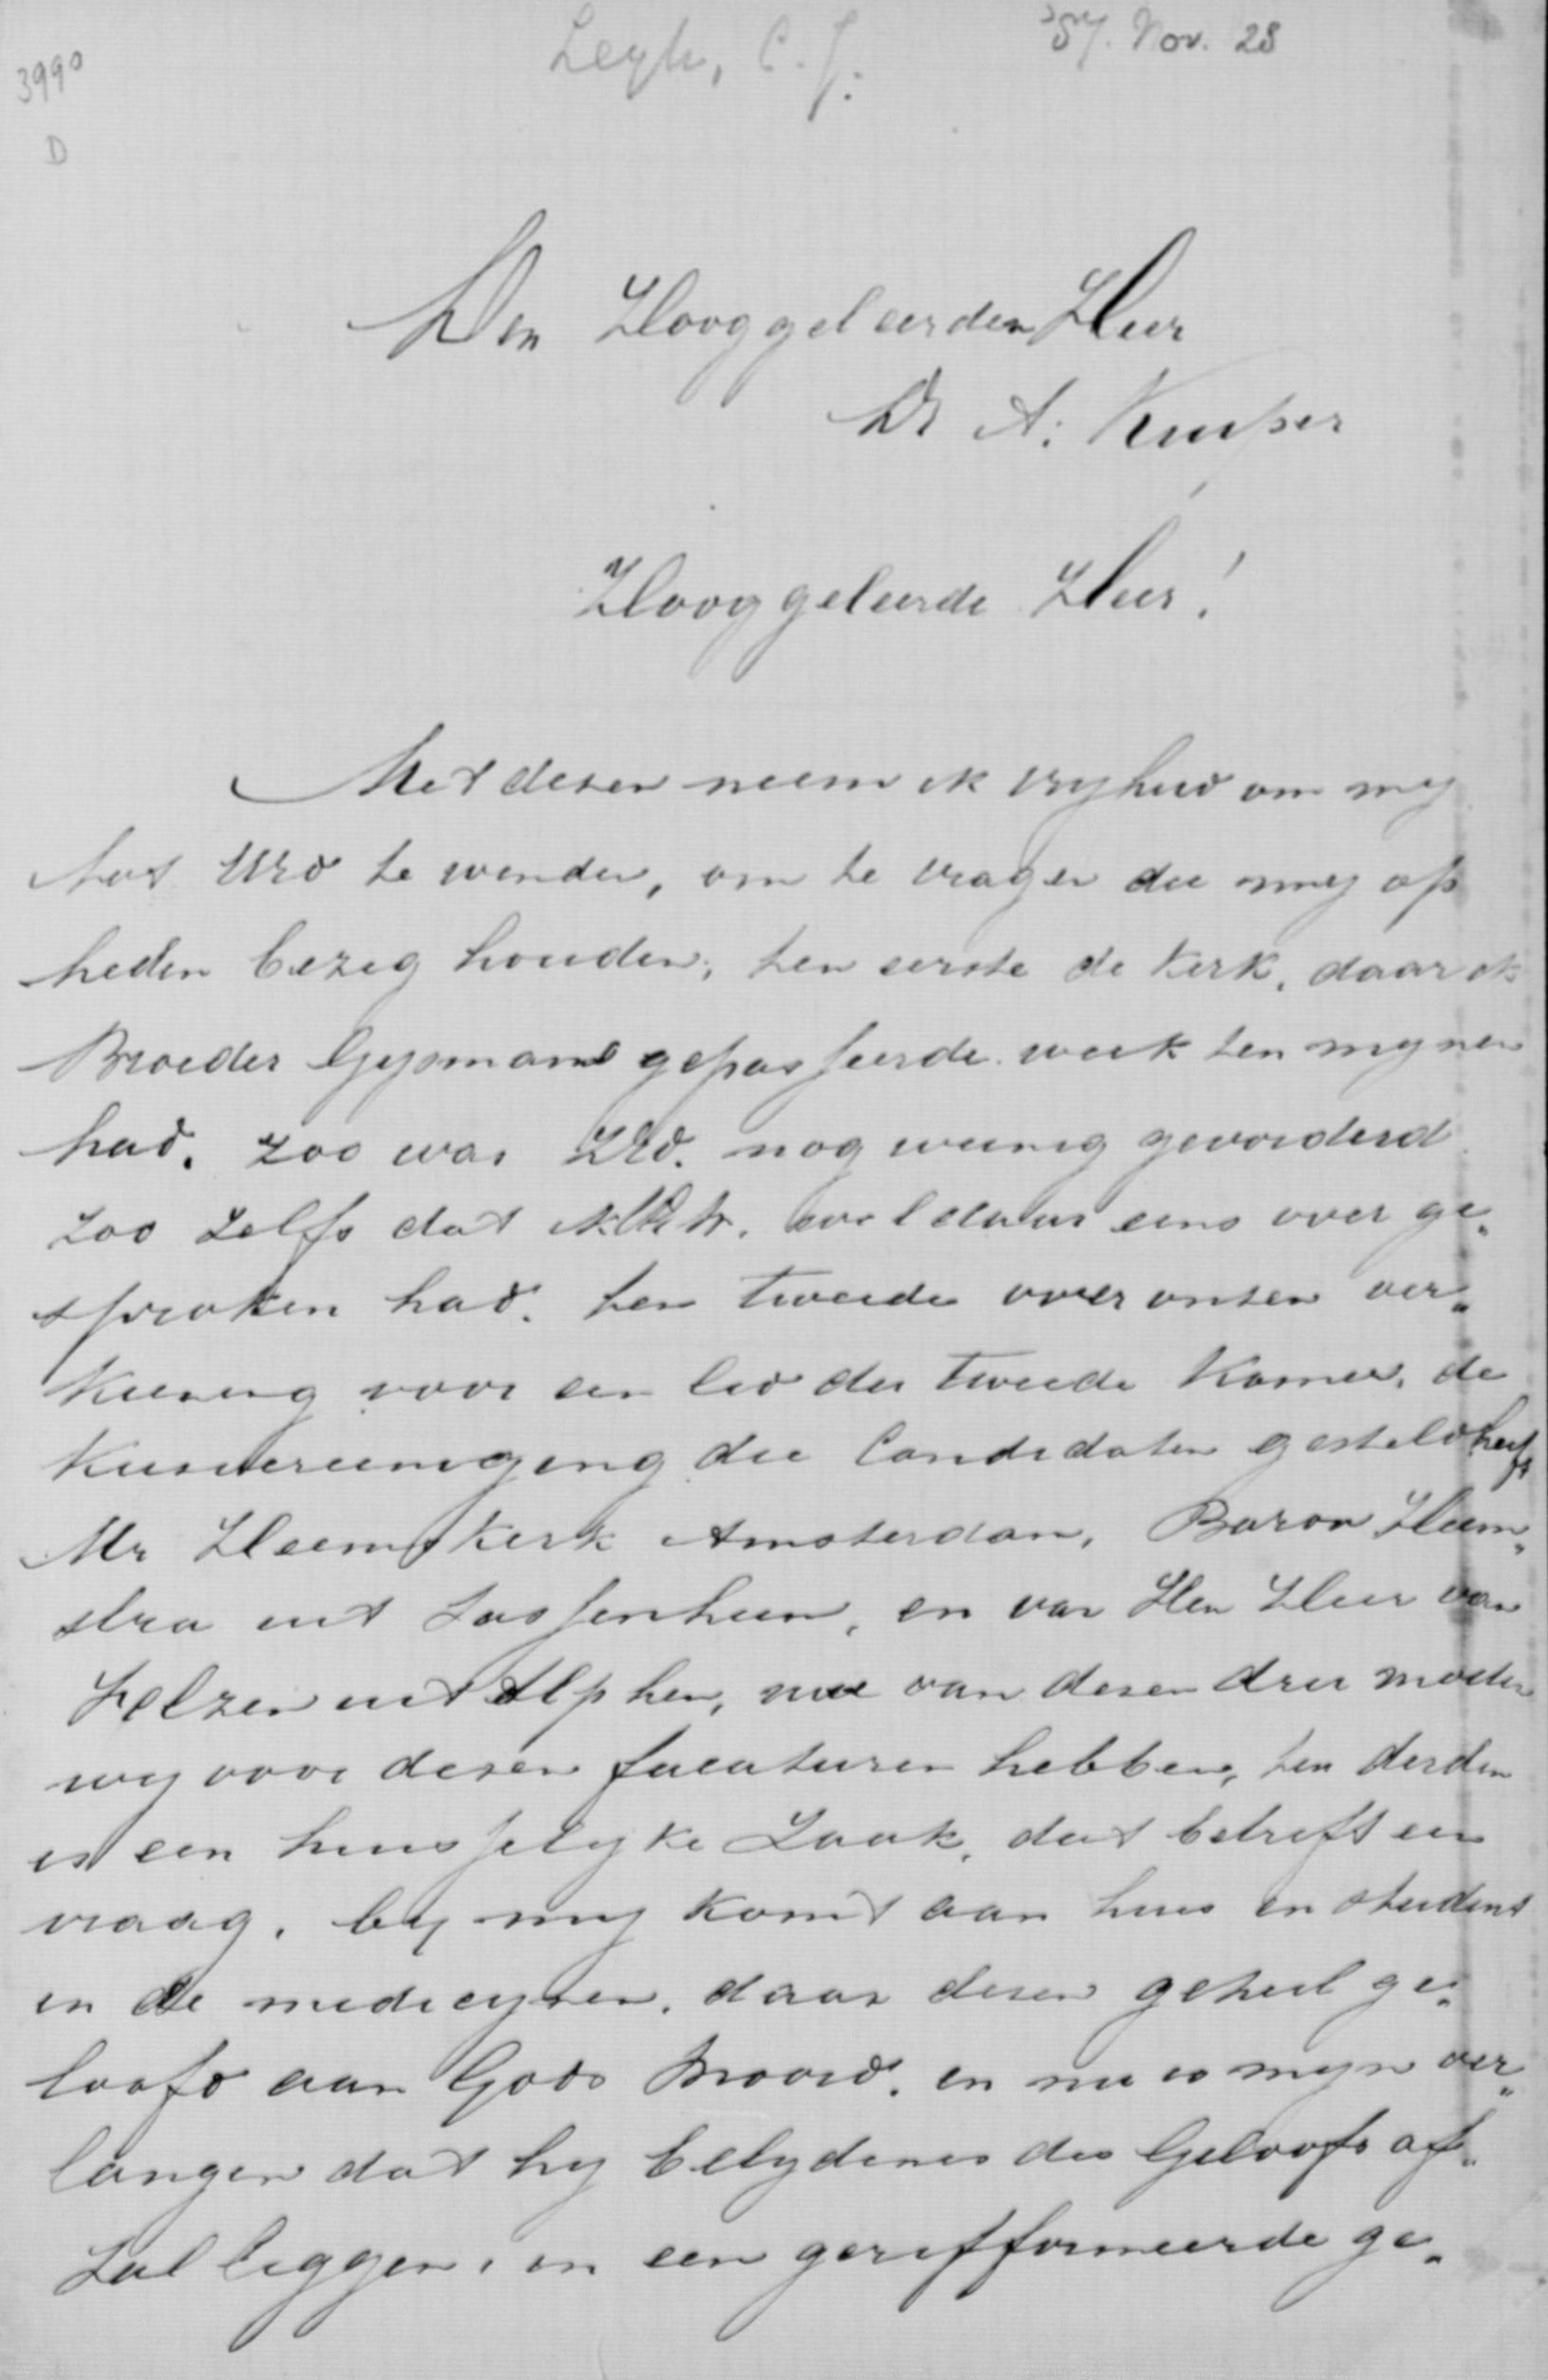 3990
D
Leyh, C. J.
'87. Nov. 28
Den Hooggeleerden Heer
Dr A. Kuyper
Hooggeleerde Heer!
Met desen neem ik vryheid om my
tot UEd te wenden, om te vragen die my op
heden bezig houden; ten eerste de Kerk, daar ik
Broeder Gysman gepasseerde week ten mynen
had. zoo was ZEd. nog weinig gevorderd
zoo zelfs dat wel daar eens over ge„
sproken had. ten tweede over onsen ver„
kiesing voor een lid der tweede Kamer, de
Kiesvereeniging die Candidaten gesteld heeft
Mr Heemskerk Amsterdam, Baron Heem„
stra uit Sassenheim, en van Den Heer van
Helzen uit Alphen, wie van desen drie moeten
wy voor desen facaturen hebben, ten derden
is een huisselyke Zaak, dat betreft een
vraag. by my komt aan huis en student
in de medicynen, daar desen geheel ge„
loofd aan Gods Woord. en nu is myn ver„
langen dat hy belydenis des Geloofs af„
zal leggen, in een gerefformeerde ge„